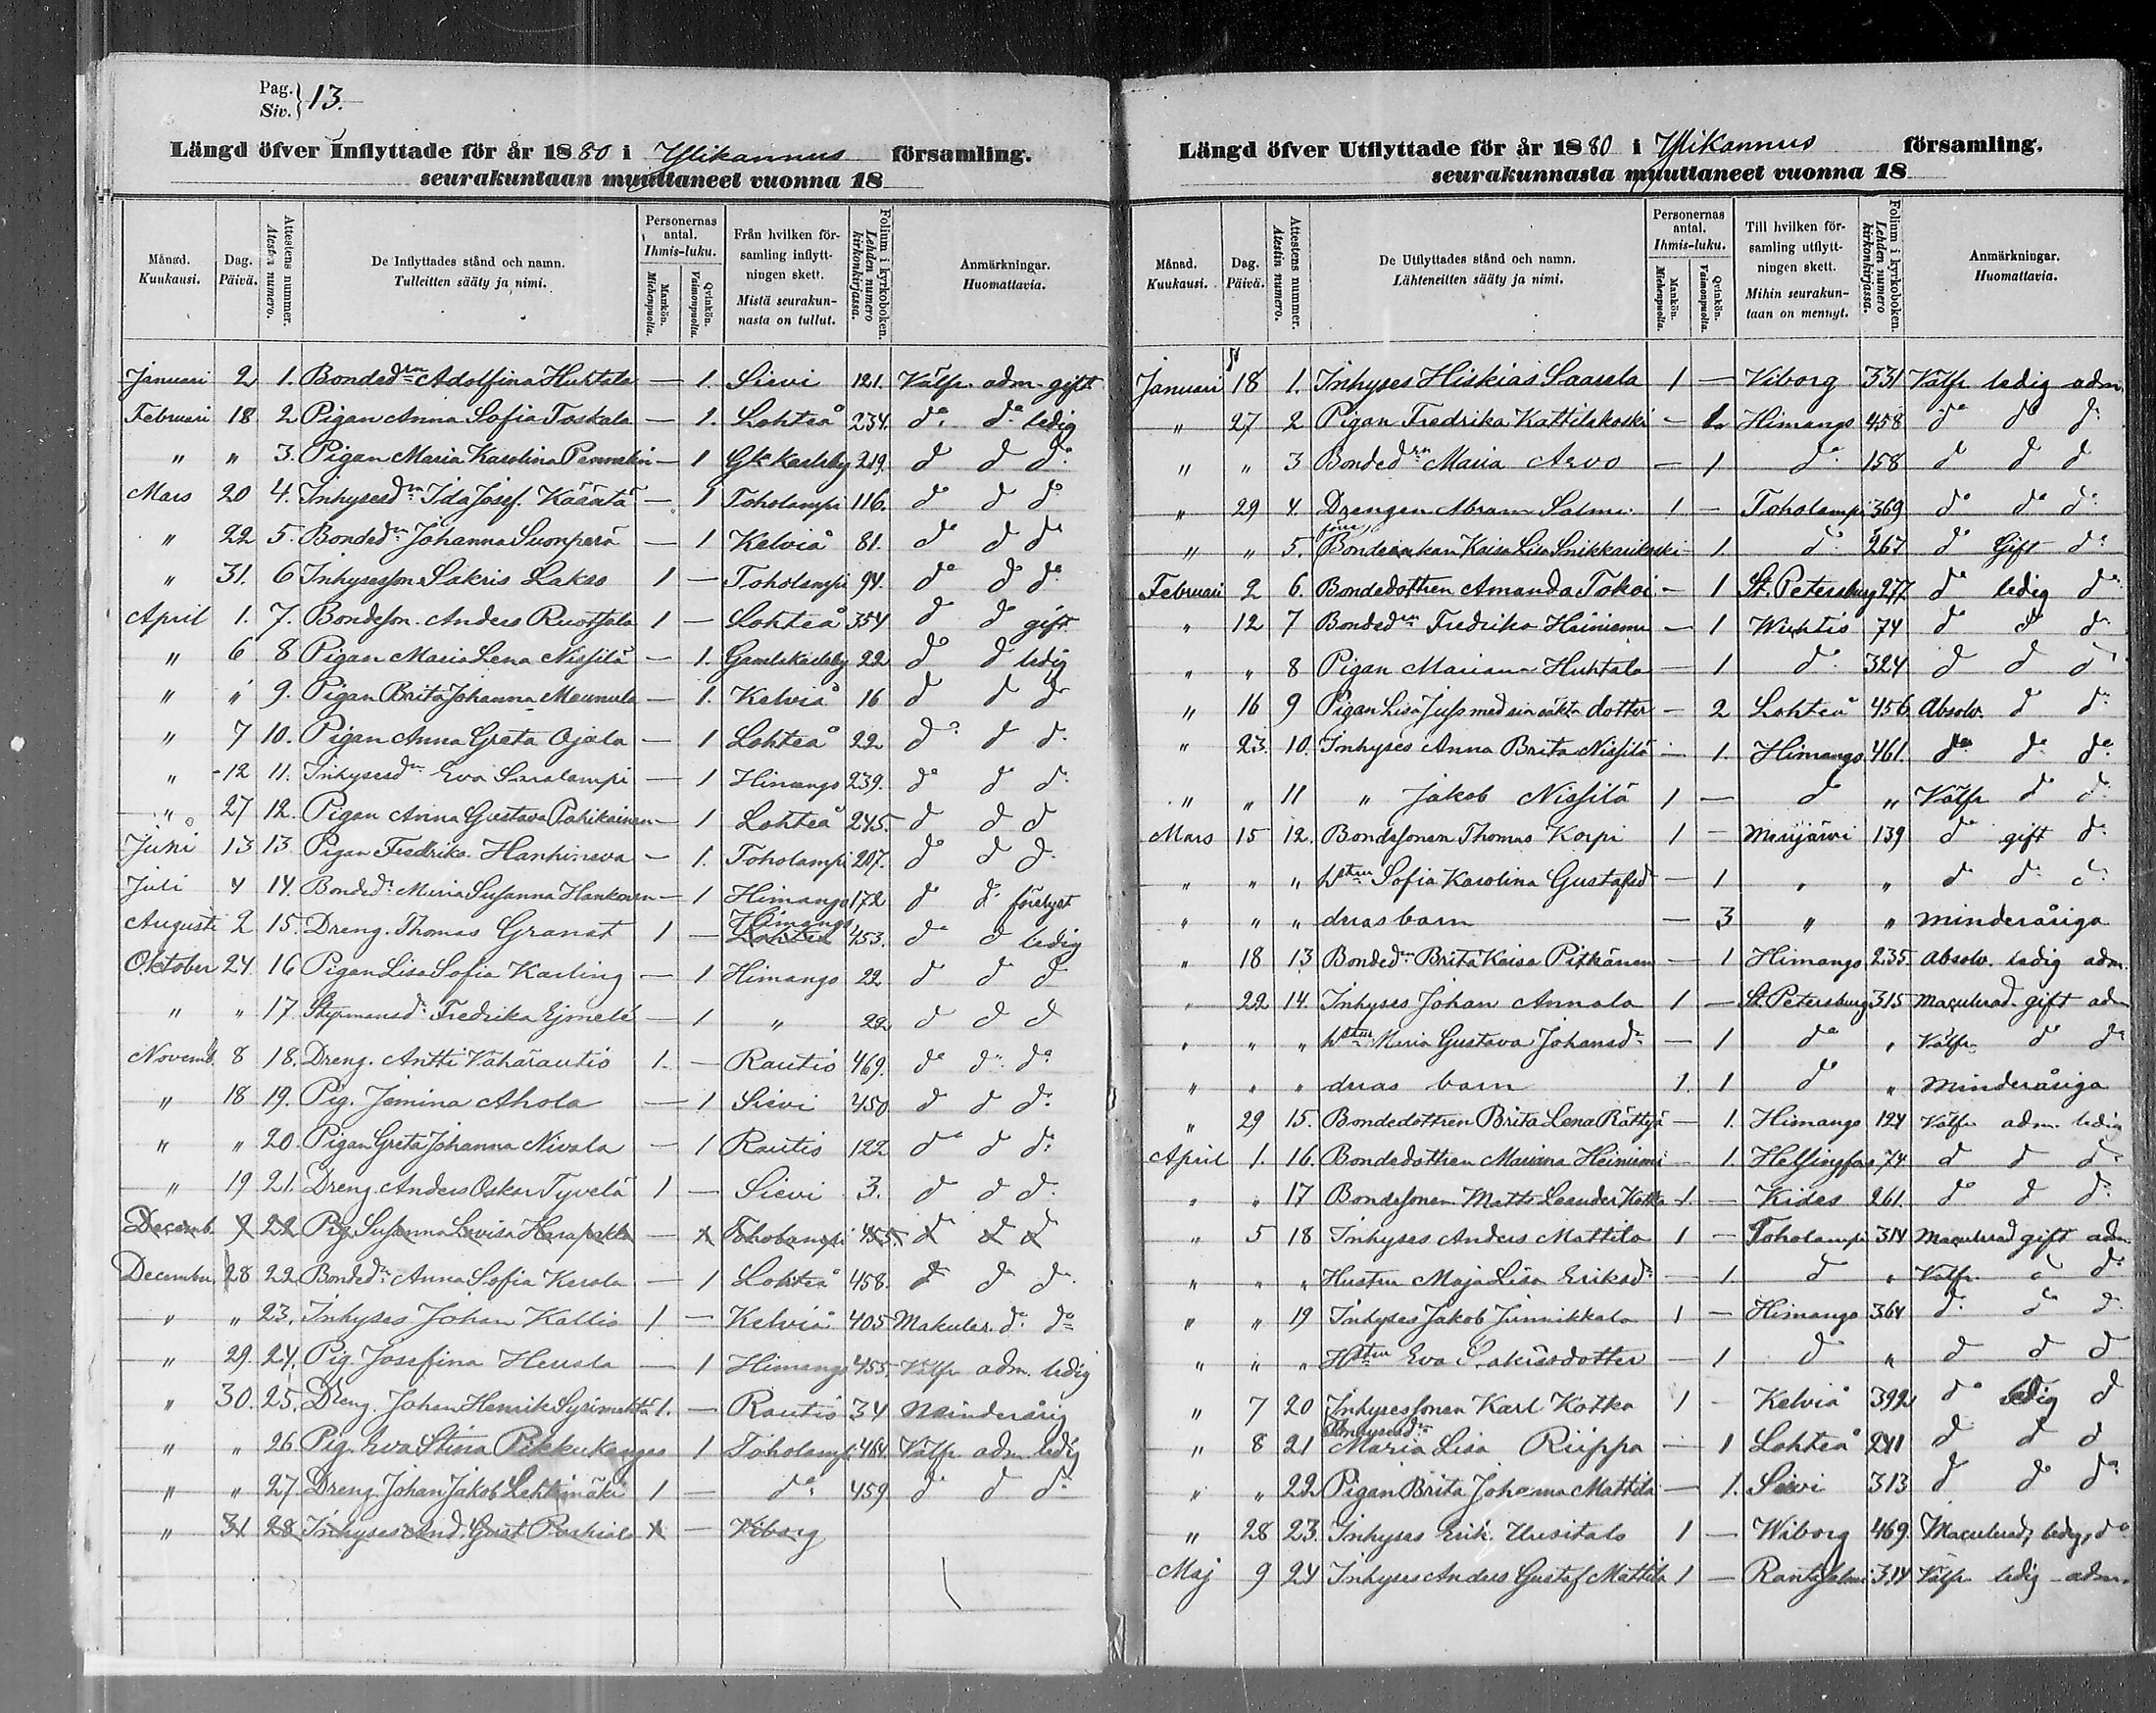 Pag. Siv. } 13.
Längd öfver Inflyttade för år 1880 i Ylikannus församling.
seurakuntaan muuttaneet vuonna 18
Månad. Kuukausi.
Dag. Päivä.
Attestens nummer. Atestin numero.
De Inflyttades stånd och namn. Tulleitten sääty ja nimi.
Personernas antal. Ihmis-luku.
Mankön. Miehenpuolia.
Qvinkön. Vaimonpuolia.
Från hvilken församling inflyttningen skett. Mistä seurakunnasta on tullut.
Folium i kyrkoboken. Lehden numero kirkonkirjassa.
Anmärkningar. Huomattavia.
Januari 2 1. Bondedrn Adolfina Huhtala — 1. Sievi 121. Välfr. adm. gift
Februari 18 2 Pigan Anna Sofia Toskala — 1. Lohteå 234. do do ledig
" " 3. Pigan Maria Karolina — 1 Gla Karleby 219. d d do
Mars 20 4. Inhysesdrn Ida Josef. Käänta — 1 Toholampi 116. do d do
" 22 5. Bondedrn Johanna Suonperä — 1 Kelviå 81. do d do
" 31. 6 Inhysesson Sakris Lakso 1 — Toholampi 94. do do do
April 1. 7. Bondeson Anders Ruotsala 1 — Lohteå 354 d do gift
" 6 8 Pigan Maria Lena Nissilä — 1. Gamlakarleby 22 do d ledig
" " 9. Pigan Brita Johanna Maunula — 1. Kelviå 16 d d do
" 7 10. Pigan Anna Greta Ojala — 1 Lohteå 22 do d do
" 12 11. Inhysesdrn Eva Saralampi — 1 Himango 239. do do do
" 27 12. Pigan Anna Gustava Pahikainen — 1 Lohteå 245. d d d
Juni 13 13 Pigan Fredrika Hanhineva — 1. Toholampi 207. do d do
Juli 4 14. Bonded. Maria Susanna Hankonen — 1 Himango 172 d do förelyst
Augusti 2 15. Dreng. Thomas Granat 1 — Lohteå Himango 453. do d ledig
Oktober 24. 16 Pigan Lisa Sofia Karling — 1 Himango 22 d d d
" " 17 Fredrika Ejmelé — 1 " 22 d d d
Novemb. 8 18. Dreng. Antti Vähärautio 1. — Rautio 469. do do do
" 18 19. Pig. Jemina Ahola — 1 Sievi 450. d d do
" " 20. Pigan Greta Johanna Nivala — 1 Rautio 122 do d do
" 19 21. Dreng. Anders Oskar Tyvelä 1 — Sievi 3. d d do
Decemb. 9 22 Pig. Susanna Lovisa Harapakka — 1 Toholampi 455. d d d
December 28 22 Bondedn Anna Sofia Kerola — 1 Lohteå 458. do do do
" " 23. Inhyses Johan Kallio 1 — Kelviå 405 Makuler. do do
" 29. 24. Pig. Josefina Heusla — 1 Himango 455. Välfr adm. ledig
" 30. 25. Dreng. Johan Henrik 1. — Rautio 34 Minderårig
" " 26. Pig. Eva Stina Pikkukangas 1 Toholampi 464. Välfr adm. ledig
" " 27. Dreng. Johan Jakob Lehtimäki 1 — do 459. d d do
" 31 28 Inhyses And. Gust 1 — Viborg
Längd öfver Utflyttade för år 1880 i Ylikannus församling.
seurakunnasta muuttaneet vuonna 18
Månad. Kuukausi.
Dag. Päivä.
Attestens nummer. Atestin numero.
De Utflyttades stånd och namn. Lähteneitten sääty ja nimi.
Personernas antal. Ihmis-luku.
Mankön. Miehenpuolia.
Qvinkön. Vaimonpuolia.
Till hvilken församling utflyttningen skett. Mihin seurakuntaan on mennyt.
Folium i kyrkoboken. Lehden numero kirkonkirjassa.
Anmärkningar. Huomattavia.
Januari 18 1. Inhyses Hiskias Saarela 1 — Viborg 331 Välfr ledig adm.
" 27 2 Pigan Fredrika Kattilakoski — 1. Himango 458 do do do
" " 3 Bondedrn Maria Arvo — 1 do 158 d d d
" 29 4. Drengen Abram Salmi 1 — Toholampi 369 do do do
" " 5. förre Bondeenkan Kaisa Lisa Snikkarikoski 1. do 267 do Gift do
Februari 2 6. Bondedottren Amanda Tokoi — 1 St. Petersburg 277 do ledig do
" 12 7 Bondedrn Fredrika Heiniemi — 1 Wichtis 74 do do do
" " 8 Pigan Mariana Huhtala — 1 do 324 d d d
" 16 9 Pigan Lisa Juss med sin oäkta dotter — 2 Lohteå 456. Absolv. d do
" 23. 10. Inhyses Anna Brita Nissilä — 1. Himango 461. do do do
" " 11 " Jakob Nissilä 1 — d " Välfr d d
Mars 15 12. Bondesonen Thomas Korpi 1 — Merijärvi 139 do gift do
" " " hstru Sofia Karolina Gustafsd — 1 " " do do do
" " " deras barn — 3 " " minderåriga
" 18 13 Bondedrn Brita Kaisa Pitkänen — 1 Himango 235. Absolv. ledig adm.
" 22 14. Inhyses Johan Annala 1 — St. Petersburg 315 Maculerad gift adm
" " " hstru Maria Gustava Johansd. — 1 do " Välfr. do do
" " " deras barn 1. 1 do " minderåriga
" 29 15. Bondedottren Brita Lena Rättyä — 1. Himango 124 Välfr adm. ledig
April 1. 16. Bondedottren Mariana Heiniemi — 1. Helsingfors 74 d d do
" " 17 Bondesonen Matts Leander Kotka 1 — Kides 261. do d do
" 5 18 Inhyses Anders Mattila 1 — Toholampi 314 Maculerad gift adm
" " " Hustru Maja Lisa Eriksd. — 1 d " Välfr. d do
" " 19 Inhyses Jakob Junnikkala 1 — Himango 364 do do do
" " " Hstru Eva Sakrisdotter — 1 d " d d d
" 7 20 Inhysessonen Karl Kotka 1 — Kelviå 392 do ledig d
" 8 21 Inhysesdrn Maria Lisa Riippa — 1 Lohteå 241 d d d
" " 22 Pigan Brita Johanna Mattila — 1. Sievi 313 d do do
" 28 23. Inhyses Erik Uusitalo 1 — Wiborg 469. Maculerad, ledig, do
Maj 9 24 Inhyses Anders Gustaf Mattila 1 — Rantasalmi 314 Välfr ledig adm.